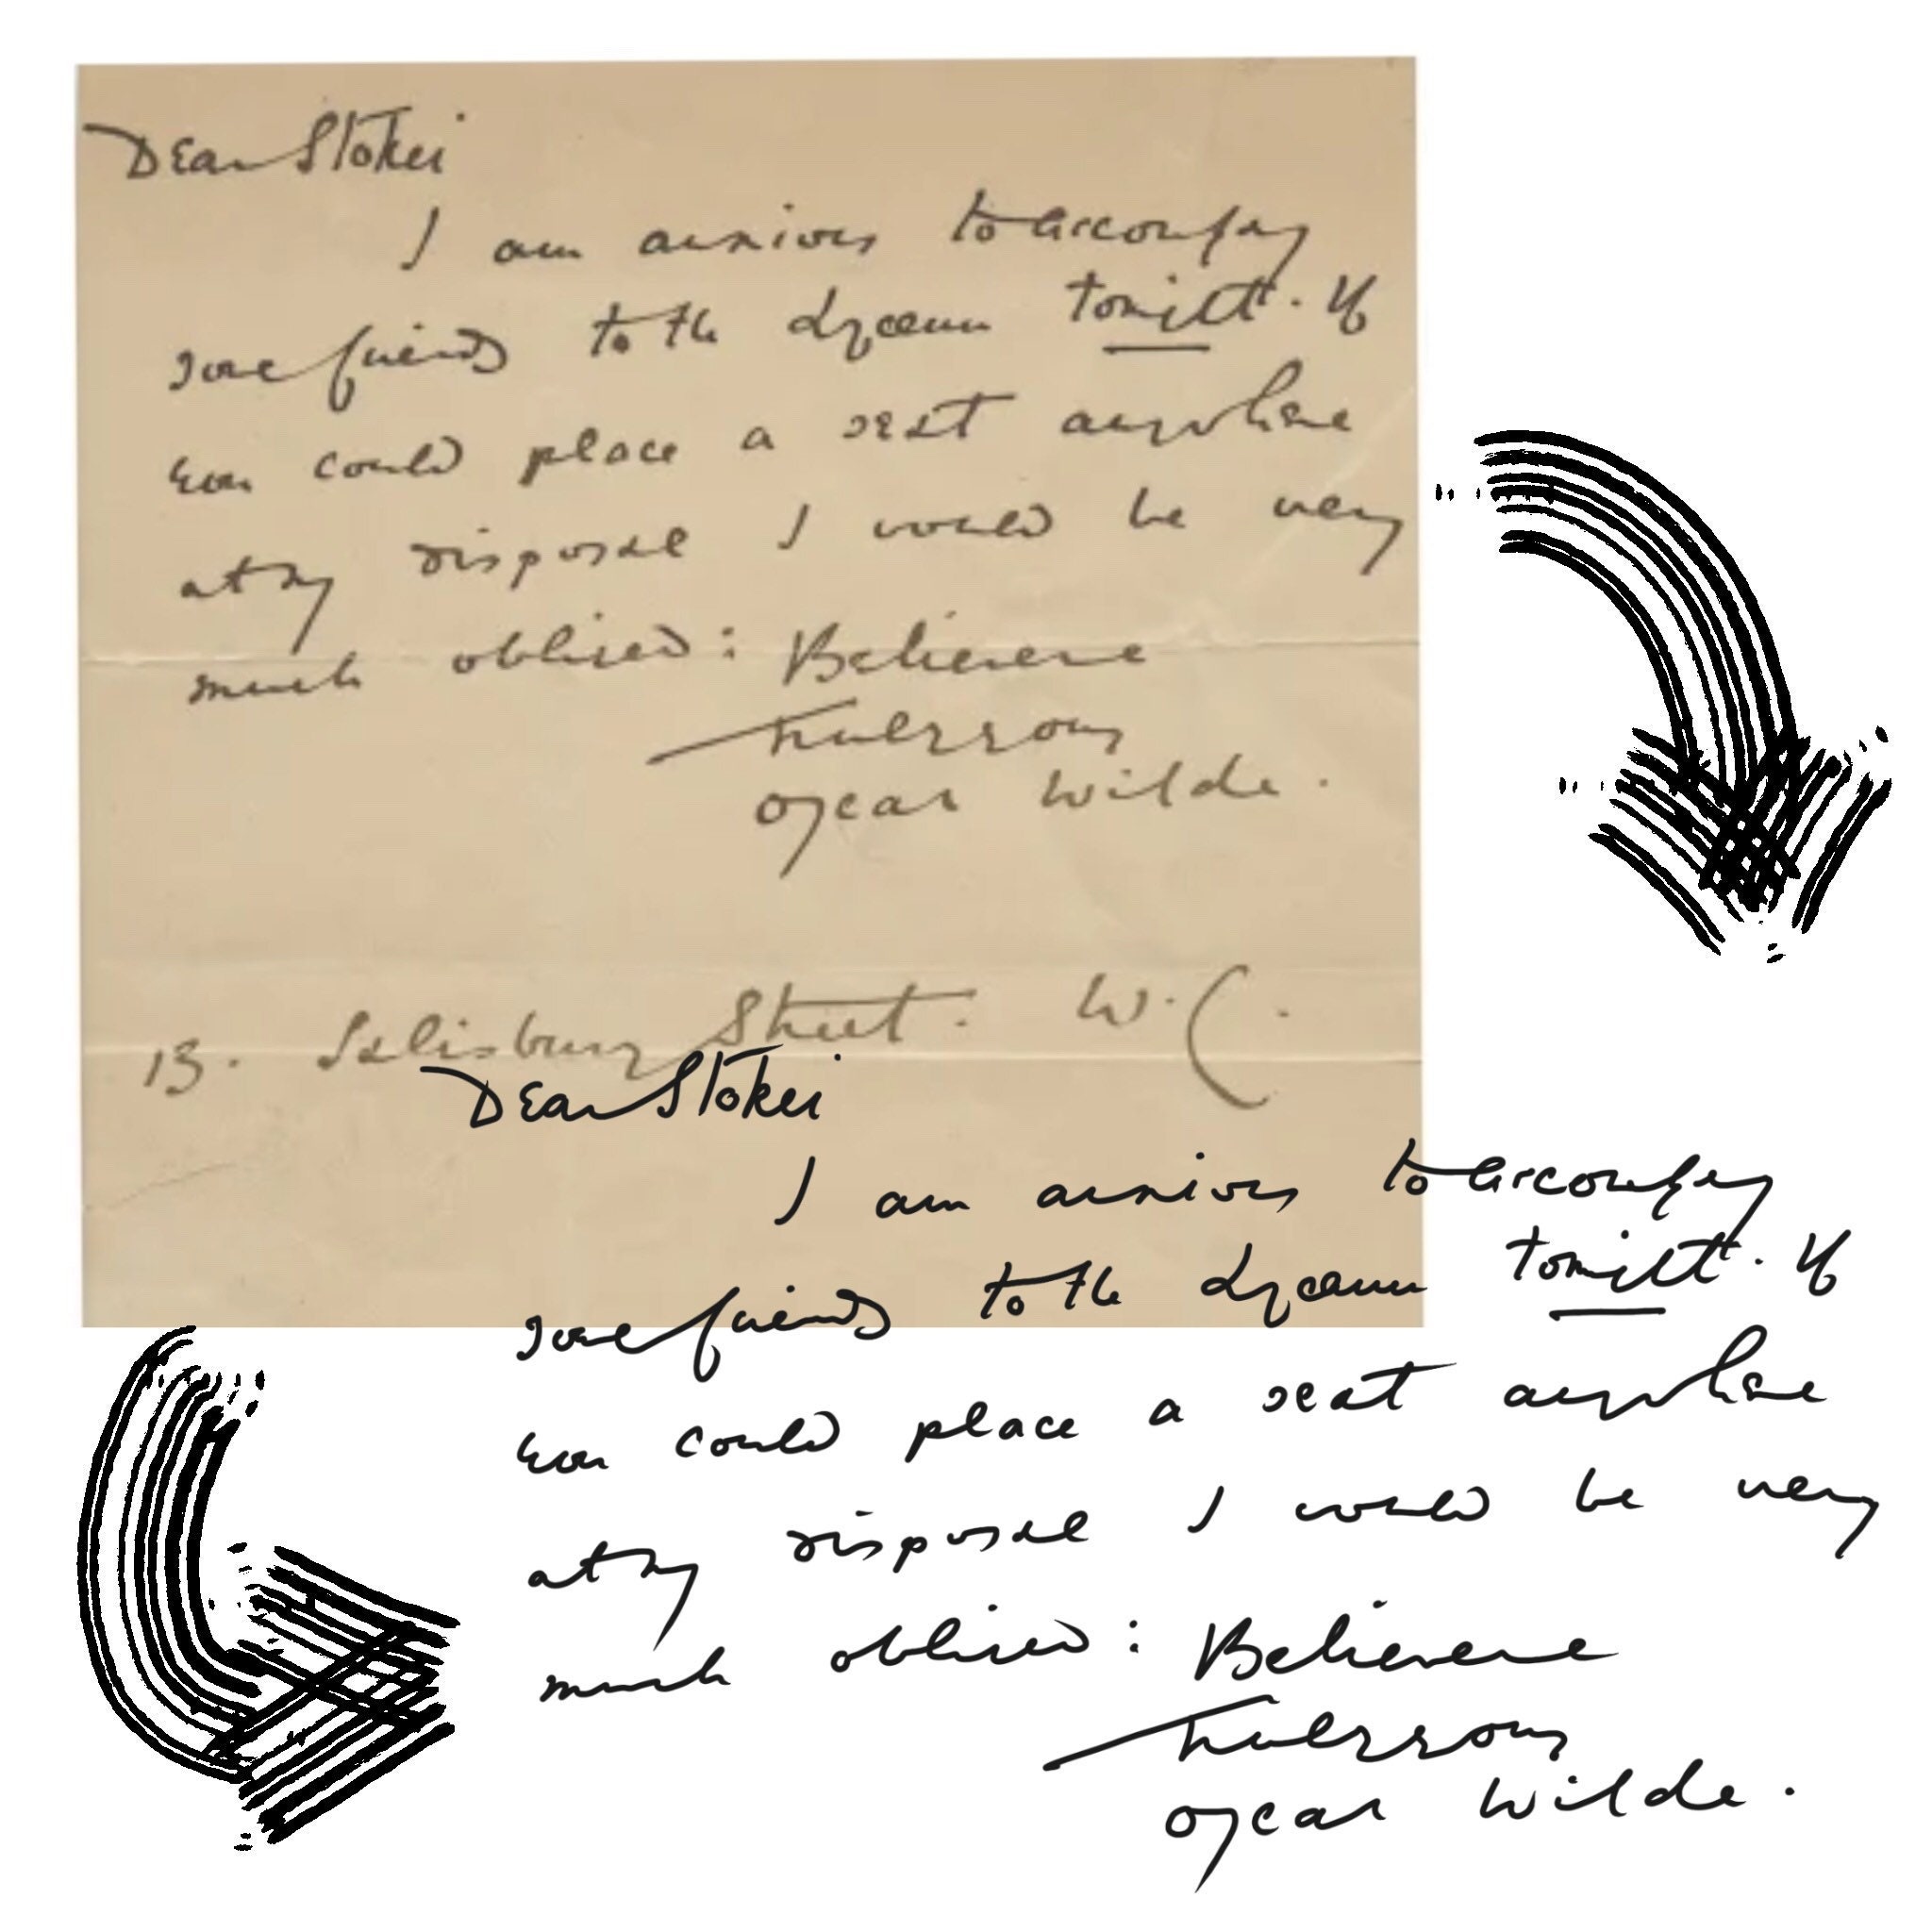 Dear Stoker
I am anxious to accompany
some friends to the Lyceum tonight. If
you could place a seat anywhere
at my disposal I would be very
much obliged: Believe me
truly yours
Oscar Wilde.
13. Salisbury Street. W.C.
Dear Stoker
I am anxious to accompany
some friends to the Lyceum tonight. If
you could place a seat anywhere
at my disposal I would be very
much obliged: Believe me
Oscar Wilde.